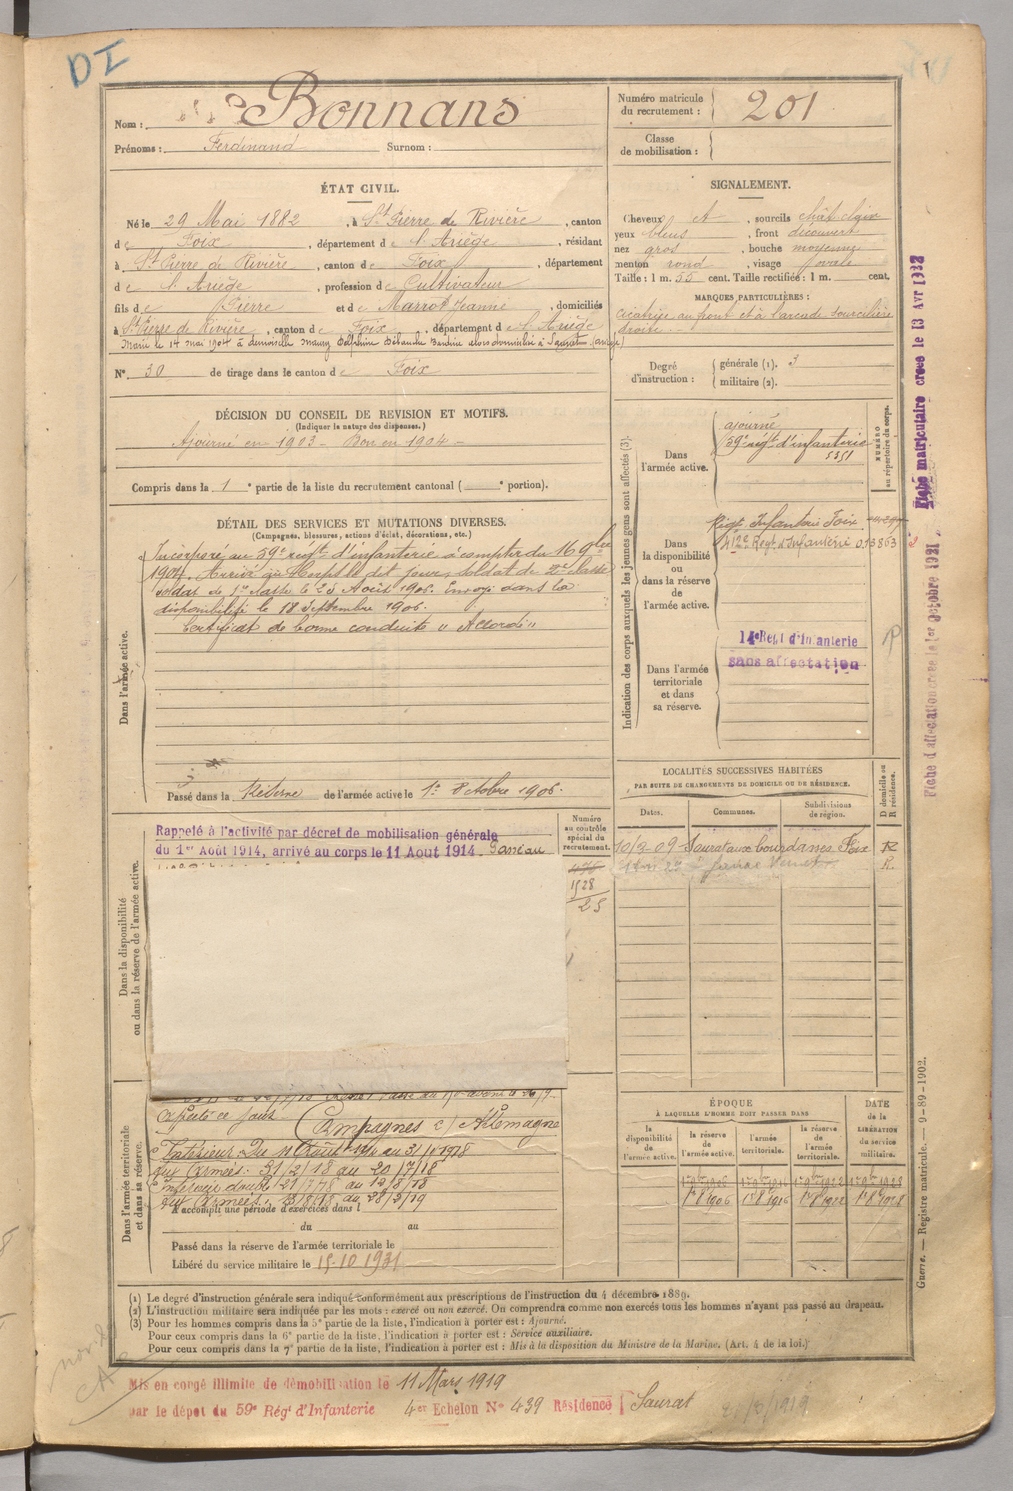 DI
Nom : Bonnans
Prénoms : Ferdinand Surnom :
Numéro matricule du recrutement : 201
Classe de mobilisation :
ÉTAT CIVIL.
Né le 29 Mai 1882, à St Pierre de Rivière, canton
de Foix, département de l'Ariège, résidant
à St Pierre de Rivière, canton de Foix, département
de l'Ariège, profession de Cultivateur
fils de Pierre et de Marrot Jeanne, domiciliés
à St Pierre de Rivière, canton de Foix, département de l'Ariège
Marié le 14 mai 1904 à demoiselle Maury Delphine
N° 30 de tirage dans le canton de Foix
SIGNALEMENT.
Cheveux ct, sourcils chât clair
yeux bleus, front découvert
nez gros, bouche moyenne
menton rond, visage ovale
Taille : 1 m. 55 cent. Taille rectifiée : 1 m. cent.
MARQUES PARTICULIÈRES :
cicatrice au front et à l'arcade sourcilière
droite
Degré d'instruction : générale (1). 3
militaire (2).
DÉCISION DU CONSEIL DE REVISION ET MOTIFS.
(Indiquer la nature des dispenses.)
Ajourné en 1903 – Bon en 1904 –
Compris dans la 1e partie de la liste du recrutement cantonal ( e portion).
DÉTAIL DES SERVICES ET MUTATIONS DIVERSES.
(Campagnes, blessures, actions d'éclat, décorations, etc.)
Dans l'armée active.
Incorporé au 59e régt d'infanterie à compter du 16 9bre
1904. Arrivé au Corps le dit jour, soldat de 2e classe
soldat de 1re classe le 25 Août 1906. Envoyé dans la
disponibilité le 18 Septembre 1906.
Certificat de bonne conduite "Accordé"
Passé dans la Réserve de l'armée active le 1er Octobre 1906.
Indication des corps auxquels les jeunes gens sont affectés (3).
NUMÉRO au répertoire du corps.
Dans l'armée active.
ajourné
59e régt d'infanterie
5351
Dans la disponibilité ou dans la réserve de l'armée active.
Régt Infanterie Foix
412e Regt d'Infanterie 013863
Dans l'armée territoriale et dans sa réserve.
14e Regt d'Infanterie
sans affectation
Fiche matriculaire creee le 13 Avr 1932
Fiche d'affectation creee le 1er Octobre 1921
LOCALITÉS SUCCESSIVES HABITÉES
PAR SUITE DE CHANGEMENTS DE DOMICILE OU DE RÉSIDENCE.
Dates. Communes. Subdivisions de région. D domicile ou R résidence.
10/3-09 Saurat aux bourdasses Foix R
R
Dans la disponibilité ou dans la réserve de l'armée active.
Rappelé à l'activité par décret de mobilisation générale
du 1er Août 1914, arrivé au corps le 11 Aout 1914.
Numéro au contrôle spécial du recrutement.
1528
25
Dans l'armée territoriale et dans sa réserve.
Campagnes c/ Allemagne
Intérieur: Du 11 Août 1914 au
aux Armées: 31/2/18 au 20/7/18
Intérieur double 21/7/78 au 12/8/18
aux Armées: 13/8/18 au 28/2/19
A accompli une période d'exercices dans l
du au
Passé dans la réserve de l'armée territoriale le
Libéré du service militaire le 15-10 1931
ÉPOQUE
À LAQUELLE L'HOMME DOIT PASSER DANS
la disponibilité de l'armée active. la réserve de l'armée active. l'armée territoriale. la réserve de l'armée territoriale.
DATE de la LIBÉRATION du service militaire.
1r 8 1906 1r 8 1916 1r 8 1922 1r 8 1928
Guerre. — Registre matricule. — 9-89-1902.
(1) Le degré d'instruction générale sera indiqué conformément aux prescriptions de l'instruction du 4 décembre 1889.
(2) L'instruction militaire sera indiquée par les mots : exercé ou non exercé. On comprendra comme non exercés tous les hommes n'ayant pas passé au drapeau.
(3) Pour les hommes compris dans la 5e partie de la liste, l'indication à porter est : Ajourné.
Pour ceux compris dans la 6e partie de la liste, l'indication à porter est : Service auxiliaire.
Pour ceux compris dans la 7e partie de la liste, l'indication à porter est : Mis à la disposition du Ministre de la Marine. (Art. 4 de la loi.)
Mis en congé illimité de démobilisation le 11 Mars 1919
par le dépot du 59e Rég' d'Infanterie 4er Echelon N° 439 Résidence Saurat